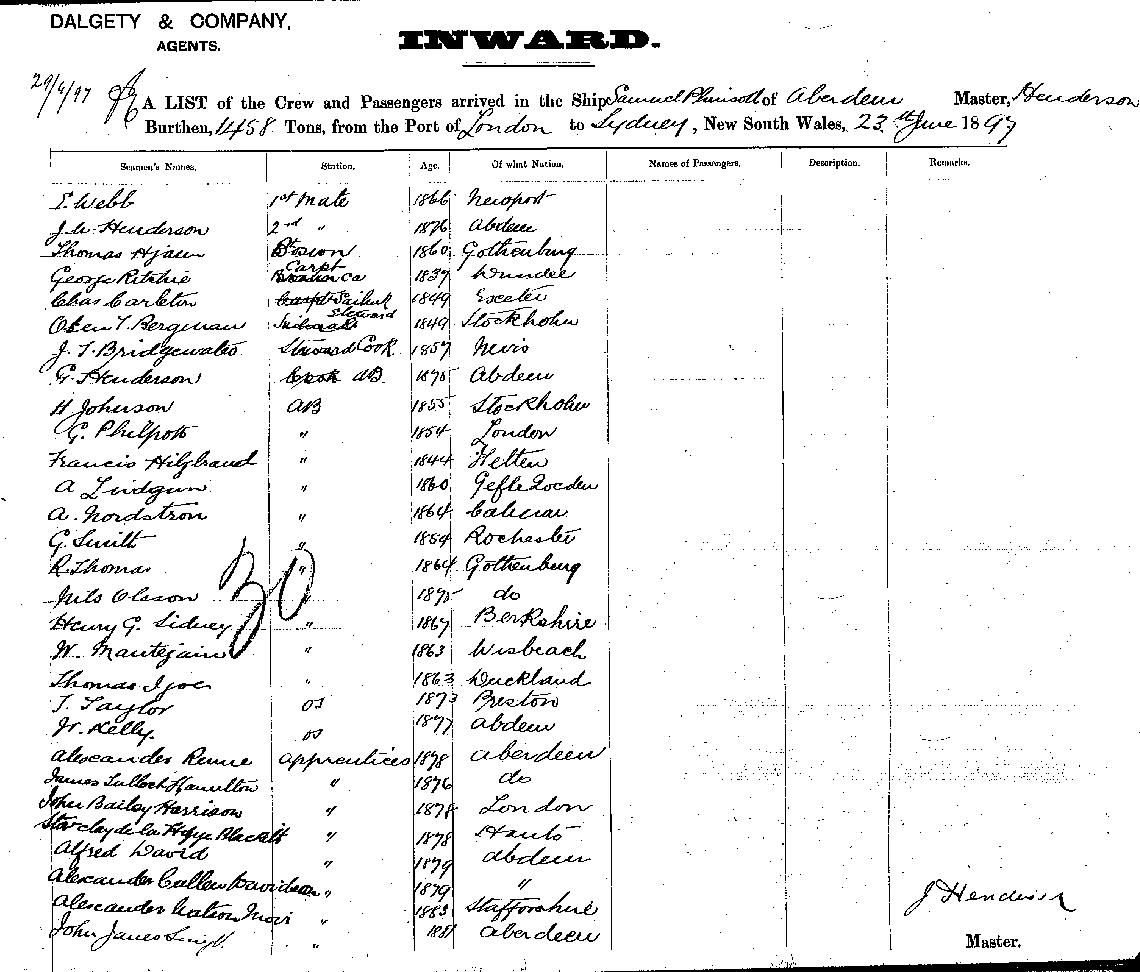 DALGETY & COMPANY,
AGENTS.
INWARD.
29/6/97
A LIST of the Crew and Passengers arrived in the Ship Samuel Plimsoll of Aberdeen Master, Henderson
Burthen, 1458 Tons, from the Port of London to Sydney, New South Wales, 23 June 1897
Seamen's Names. Station. Age. Of what Nation. Names of Passengers. Description. Remarks.
Webb 1st Mate 1866 Newport
Henderson 2nd " 1876 Abdeen
Thomas 1860 Gothenburg
George Ritchie Carpt 1837 Dundee
Chas Carleton 1849 Exeter
Bergman Steward 1849 Stockholm
J. T. Bridgewater Steward Cook 1857 Nevis
G. Henderson Cook AB 1875 Abdeen
H Johnson AB 1855 Stockholm
G. Philpots " 1854 London
Francis Hilgbraud " 1844
A " 1860 Gefle
A. Nordstron " 1864
G. Smith " 1854 Rochester
R. Thomas " 1864 Gothenburg
Nils Olsson " 1875 do
Henry G. Sidney " 1867 Berkshire
W. " 1863 Wisbeach
Thomas " 1863
T. Taylor OS 1873
W. Kelly OS 1877 Abdeen
Alexander apprentices 1878 Aberdeen
James Tulloch Hamilton " 1876 do
John Bailey Harrison " 1878 London
de la " 1878 Hants
Alfred David " 1879 Abdeen
Alexander Cullen Davidson " 1879 "
Alexander Watson " 1883 Staffordshire
John James " Aberdeen
30
J Henderson
Master.